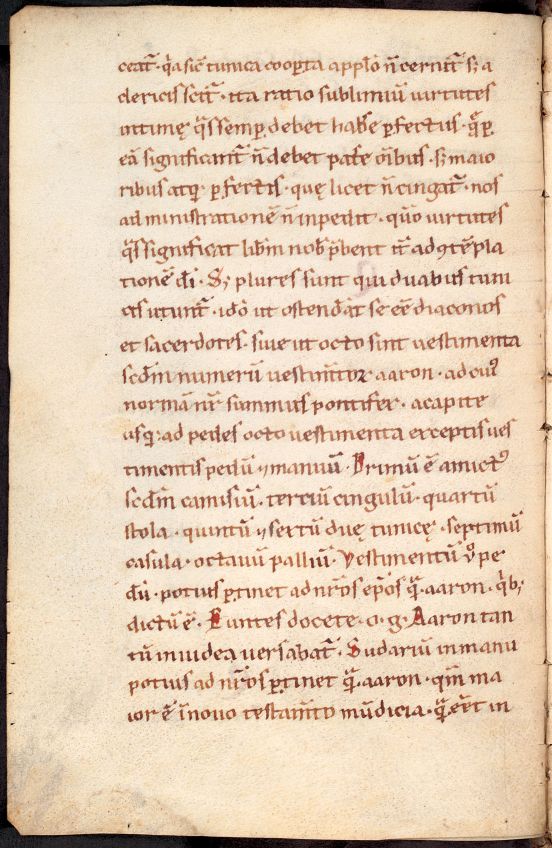 ceat̄. q̄a sic̄ tunica cooꝑta app̄lo n̄ cernit̄ sꝫ a
clericis scit̄. ita ratio sublimiū uirtutes
intimę q̄s semꝑ debet hab̄e ꝑfectus. q̄ꝑ
eā significant̄ n̄ debet pat̄e om̄ibus. sꝫ maio
ribus atq; ꝑfectis. quę licet n̄ cingat̄. nos
ad ministrationē n̄ inpedit. quō uirtutes
q̄s significat lib̄m nob̄ p̄bent t̄t ad ꝯtēpla
tionē dī. Sꝫ plures sunt qui duabus tuni
cis utunt̄. idō ut ostendāt se eē diaconos
et sacerdotes. siue ut octo sint uestimenta
scdm̄ numerū uestim̄toꝝ aaron. ad cuiꝰ
normā nr̄ summus pontifex. a capite
usq; ad pedes octo uestimenta exceptis ues
timentis pedū ⁊ manuū. Primū ē amictꝰ
scdm̄ camisiū. terciū cingulū. quartū
stola. quintū ⁊ sextū duę tunicę. septimū
casula. octauū palliū. Vestimentū ū pe
dū. potius ꝑtinet ad nr̄os ep̄os q̄ aaron. q̄bꝫ
dictū ē. Euntes docete. o. g. Aaron tan
tū in iudea uersabat̄. Sudariū in manu
potius ad nr̄os ꝑtinet q̄ aaron. qm̄ ma
ior ē in nouo testam̄to mūdicia. q̄ eēt in